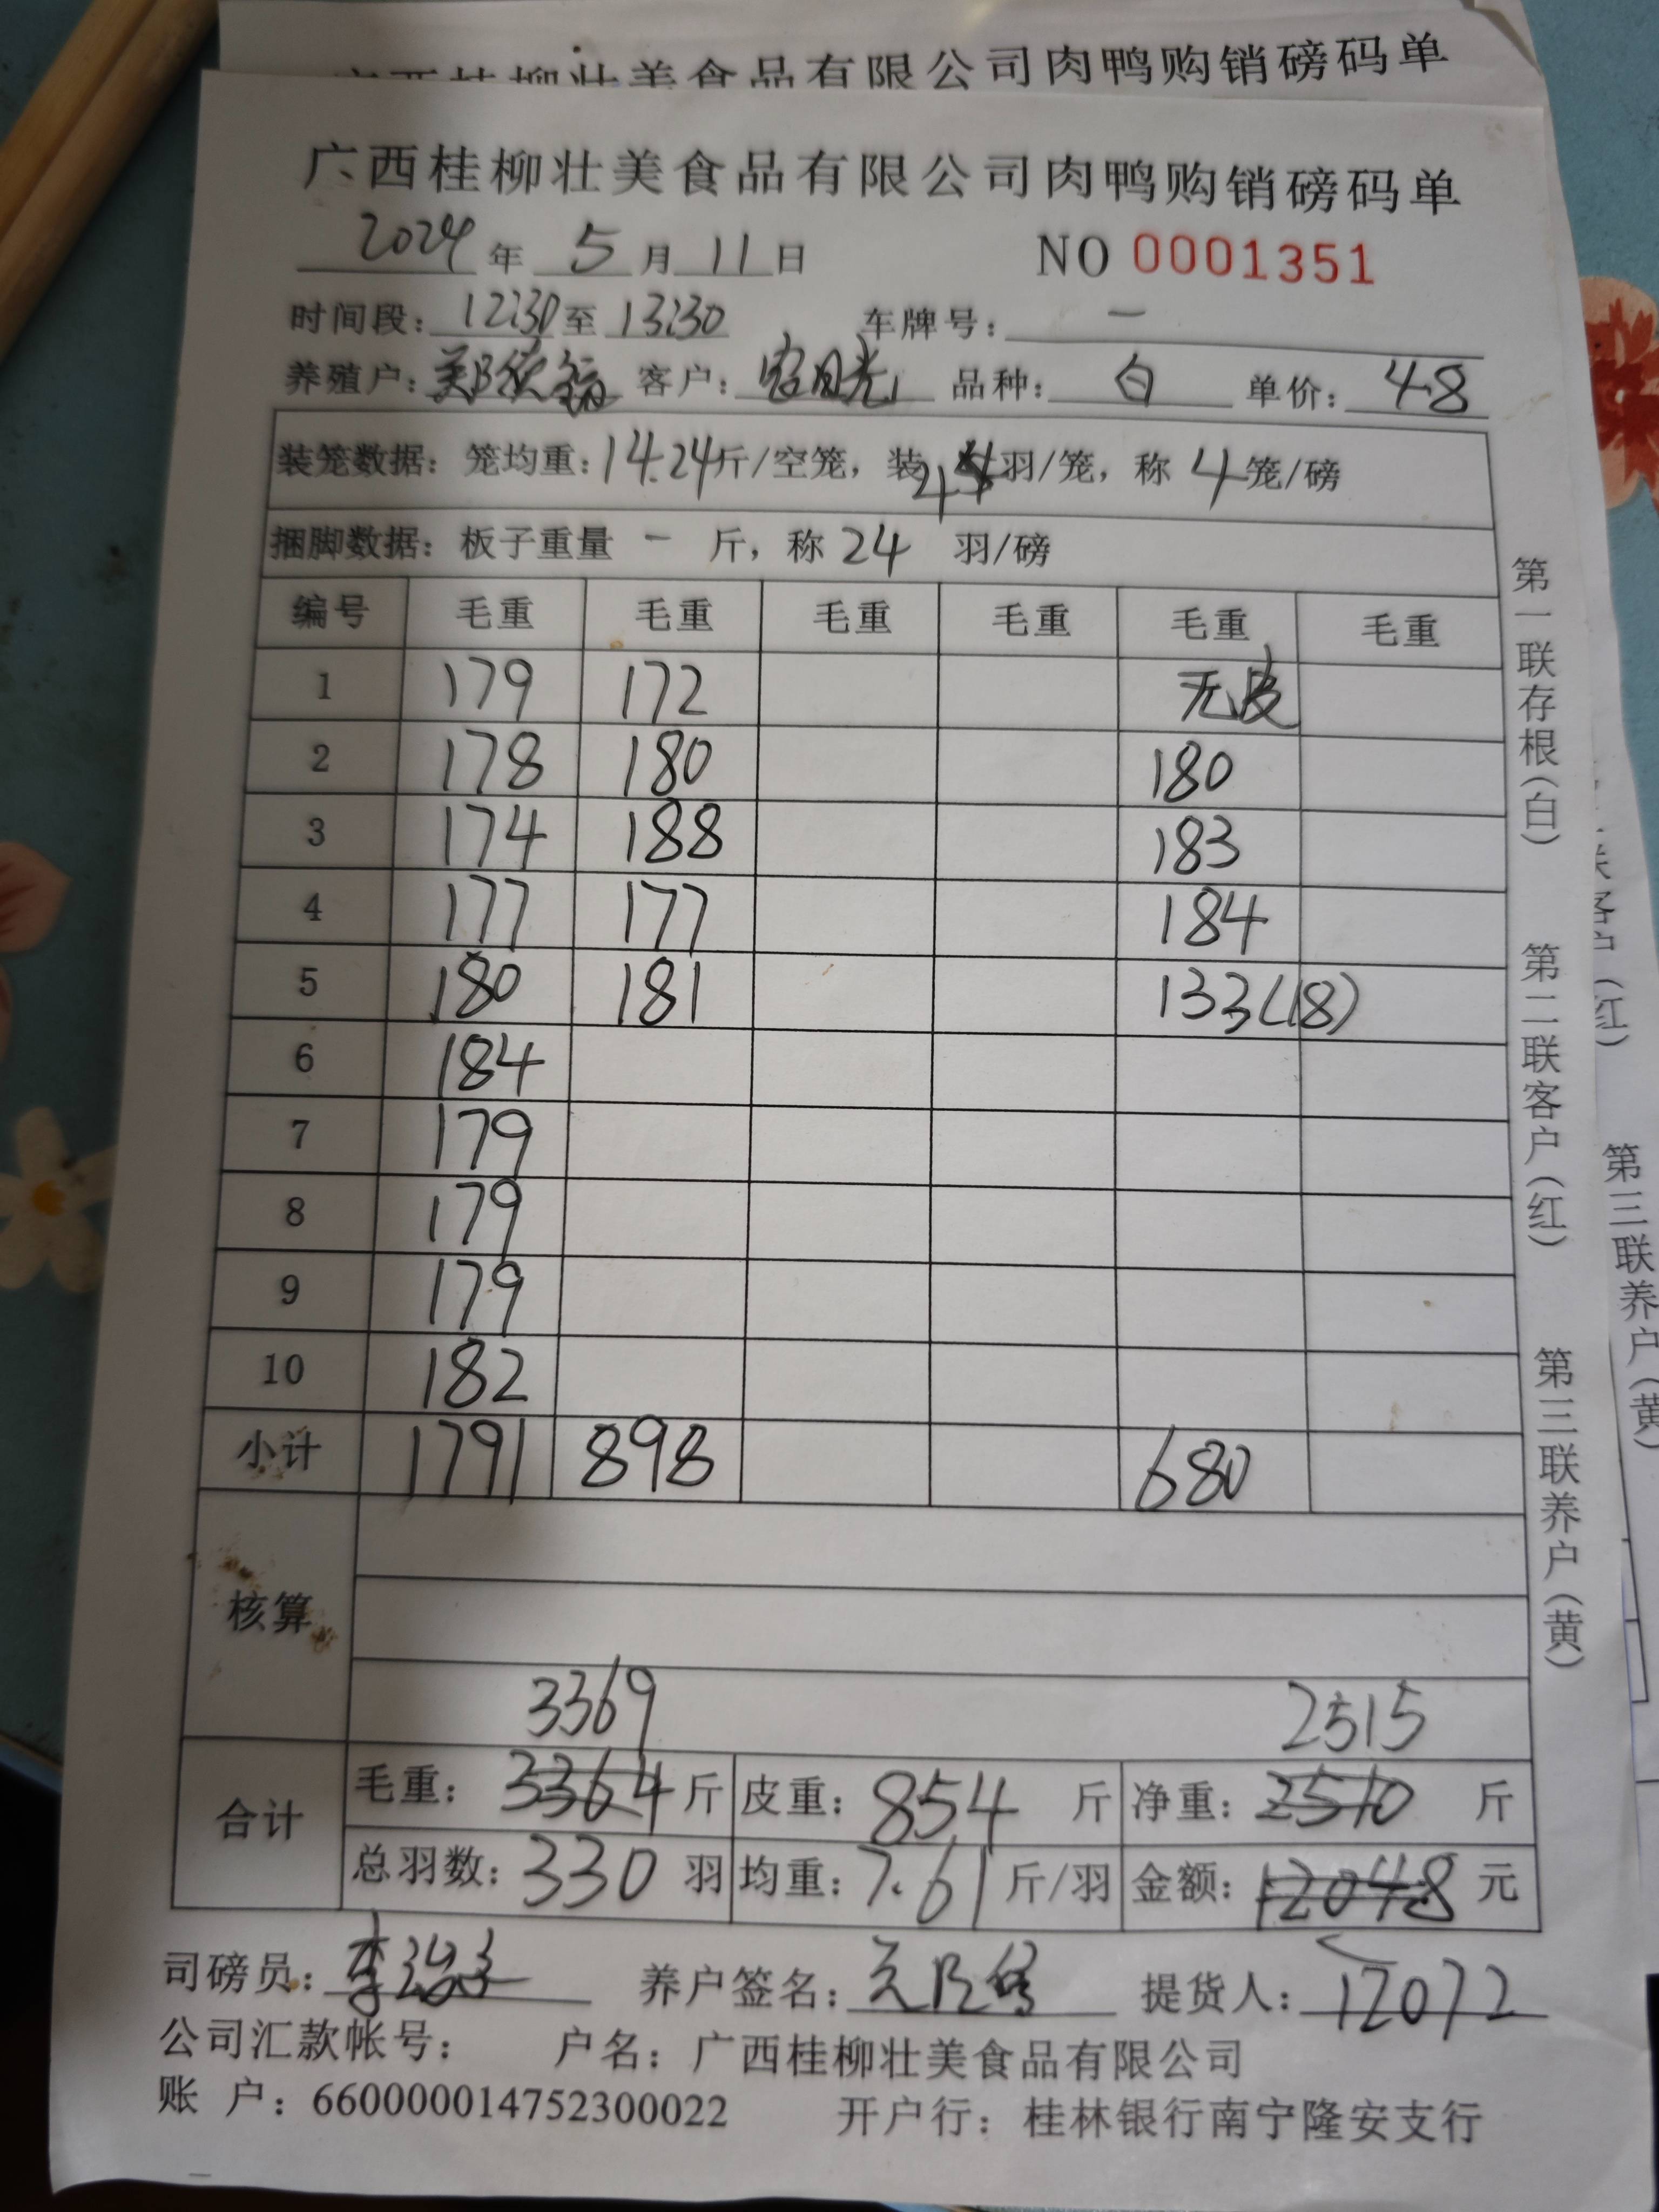 广西桂柳壮美食品有限公司肉鸭购销磅码单
广西桂柳壮美食品有限公司肉鸭购销磅码单
2024年 5月11日 NO 0001351
时间段：12:30至13:30 车牌号：一
养殖户：郑 客户： 品种：白 单价：4.8
装笼数据：笼均重：14.24斤/空笼，装 羽/笼，称 4 笼/磅
捆脚数据：板子重量 一 斤，称 24 羽/磅
编号 毛重 毛重 毛重 毛重 毛重 毛重
1 179 172 无皮
2 178 180 180
3 174 188 183
4 177 177 184
5 180 181 133(18)
6 184
7 179
8 179
9 179
10 182
小计 1791 898 680
核算
3369 2515
合计 毛重：3364斤 皮重：854斤 净重：2510斤
总羽数：330羽 均重：7.61斤/羽 金额：12048元
司磅员：李 养户签名： 提货人：12072
公司汇款帐号： 户名：广西桂柳壮美食品有限公司
账 户：660000014752300022 开户行：桂林银行南宁隆安支行
第一联存根（白） 第二联客户（红） 第三联养户（黄）
联客户（红） 第三联养户（黄）